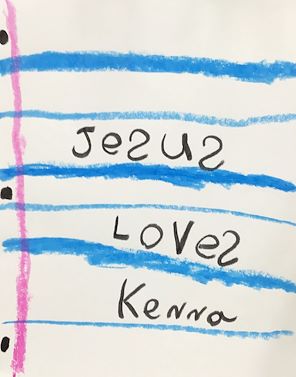 Jesus
Loves
Kenna